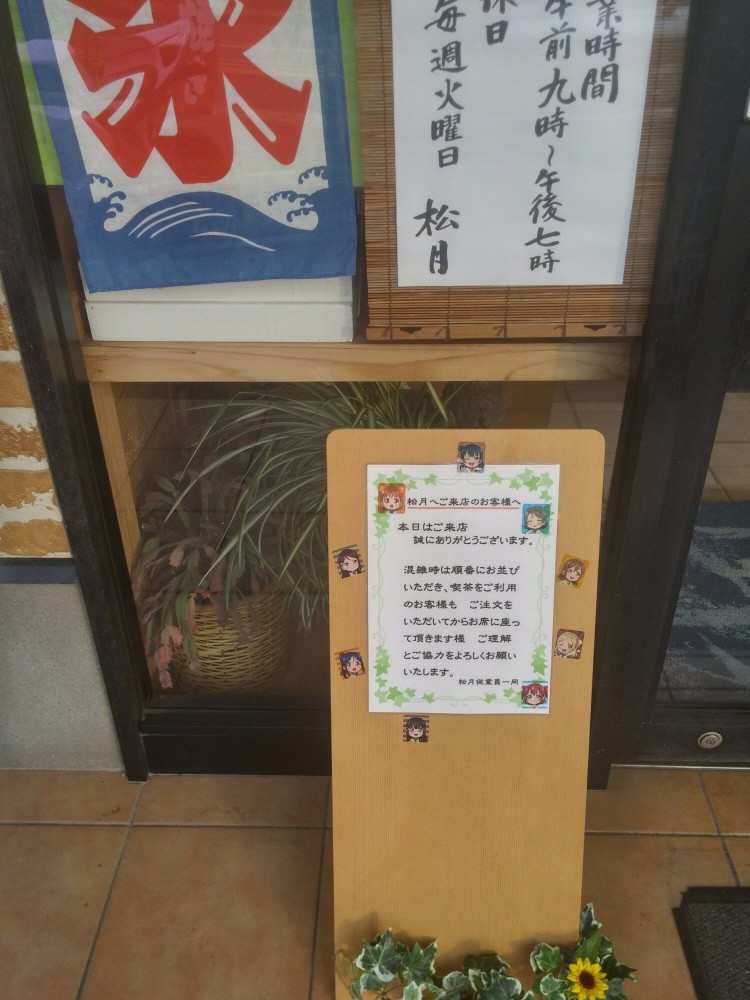 氷
業時間
午前九時～午後七時
休日
毎週火曜日
松月
松月へご来店のお客様へ
本日はご来店
誠にありがとうございます。
混雑時は順番にお並び
いただき、喫茶をご利用
のお客様も　ご注文を
いただいてからお席に座っ
て頂きます様　ご理解
とご協力をよろしくお願い
いたします。
松月従業員一同